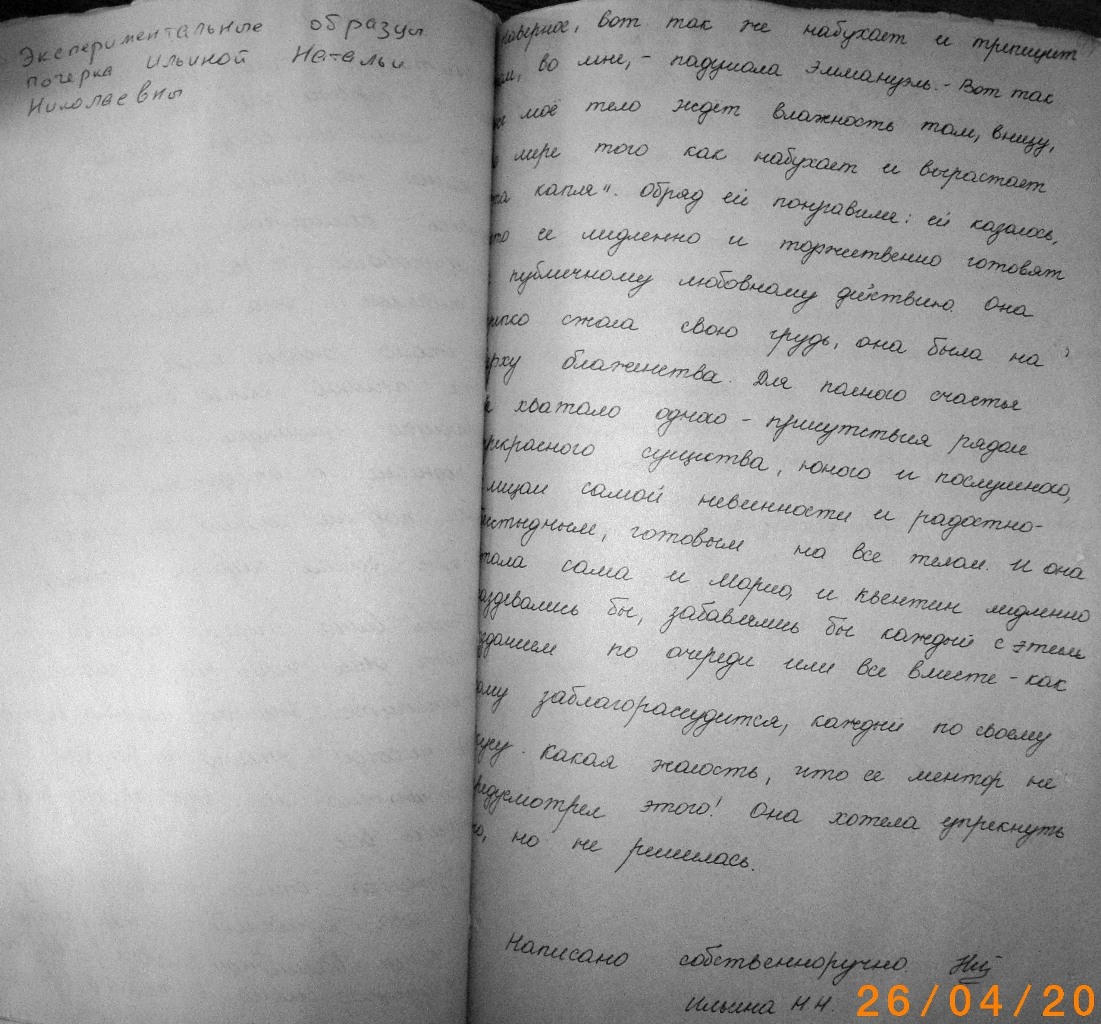 Экспериментальные образцы
почерка Ильиной Натальи
Николаевны
наверное, вот так же набухает и трепещит
во мне, - падумала Эммануэль. - Вот так
моё тело ждет влажность там, внизу,
мере того как набухает и вырастает
капля". Обряд ей понравился: ей казалось,
что ее медленно и торжественно готовят
публичному любовному действию. Она
сжала свою грудь, она была на
верху блаженства. Для полного счастья
хватало одного - присутствия рядом
прекрасного существа, юного и послушного,
лицом самой невинности и радостно-
бестыдным, готовым на все телом. И она
сама и Марио, и Квентин медленно
раздевались бы, забавлялись бы каждый с этем
созданием по очереди или все вместе - как
кому заблагорассудится, каждый по своему
вкусу. Какая жалость, что ее ментор не
предусмотрел этого! Она хотела упрекнуть
его, но не решилась.
Написано собственноручно
Ильина Н.Н.
26/04/20